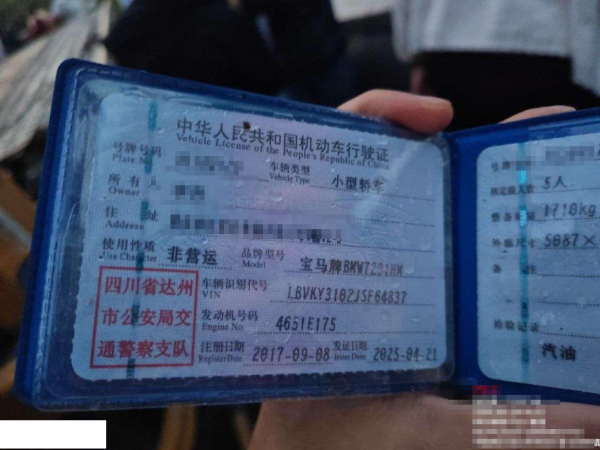 中华人民共和国机动车行驶证
Vehicle License of the People's Republic of China
号牌号码
Plate No.
车辆类型
Vehicle Type
小型轿车
所有人
Owner
住 址
Address
使用性质
Use Character
非营运
品牌型号
Model
宝马牌BMW7201HM
四川省达州
市公安局交
通警察支队
车辆识别代号
VIN
LBVKY3102JSF64837
发动机号码
Engine No.
4651E175
注册日期
Register Date
2017-09-08
发证日期
Issue Date
2025-04-21
号牌
核定载人数
5人
整备质量
1710kg
外廓尺寸
5087×
备 注
检验记录
汽油